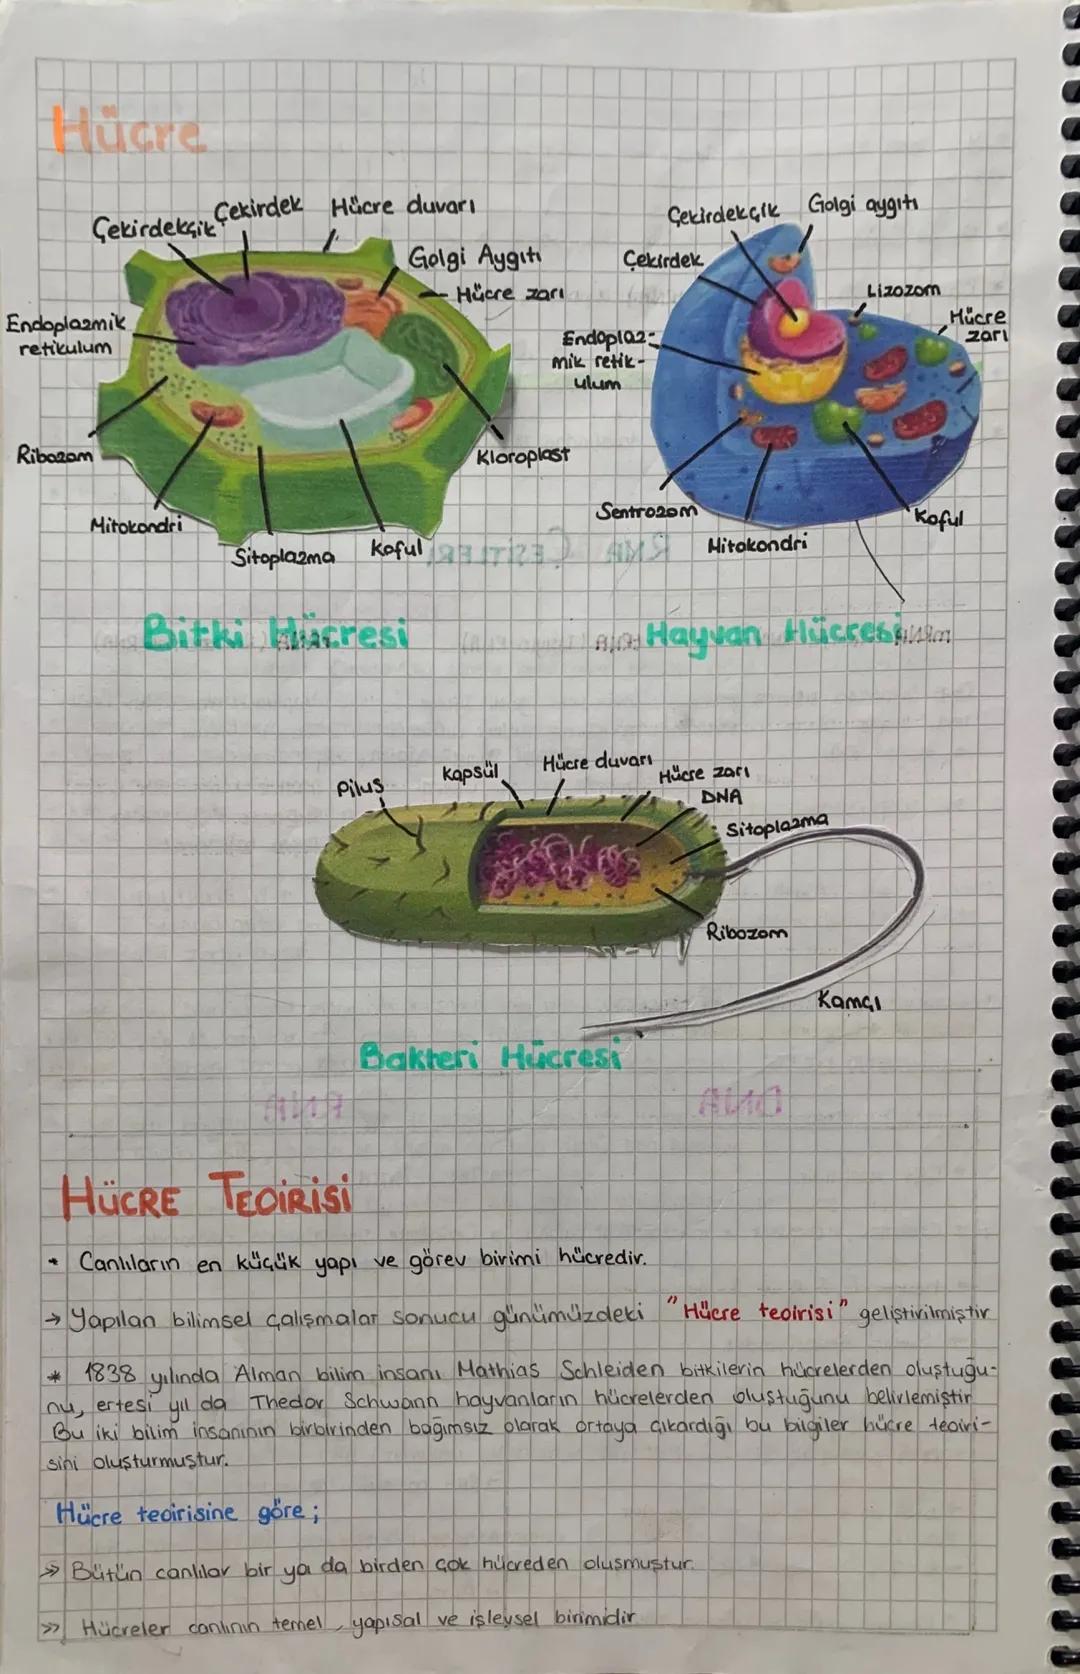 Hücre
Çekirdekçik
Çekirdek
Hücre duvarı
Golgi Aygıtı
Hücre zarı
Endoplazmik
retikulum
Ribozom
Mitokondri
Sitoplazma
Koful
Kloroplast
Bitki Hücresi
Çekirdekçik
Golgi aygıtı
Çekirdek
Lizozom
Hücre
zarı
Endoplaz-
mik retik-
ulum
Sentrozom
Mitokondri
Koful
Hayvan Hücresi
Pilus
Kapsül
Hücre duvarı
Hücre zarı
DNA
Sitoplazma
Ribozom
Kamçı
Bakteri Hücresi
HÜCRE TEOİRİSİ
* Canlıların en küçük yapı ve görev birimi hücredir.
→ Yapılan bilimsel çalışmalar sonucu günümüzdeki "Hücre teoirisi" geliştirilmiştir
* 1838 yılında Alman bilim insanı Mathias Schleiden bitkilerin hücrelerden oluştuğu-
nu, ertesi yıl da Thedor Schwann hayvanların hücrelerden oluştuğunu belirlemiştir
Bu iki bilim insanının birbirinden bağımsız olarak ortaya çıkardığı bu bilgiler hücre teoiri-
sini oluşturmuştur.
Hücre teoirisine göre;
>> Bütün canlılar bir ya da birden çok hücreden oluşmuştur.
>> Hücreler canlının temel, yapısal ve işleysel birimidir